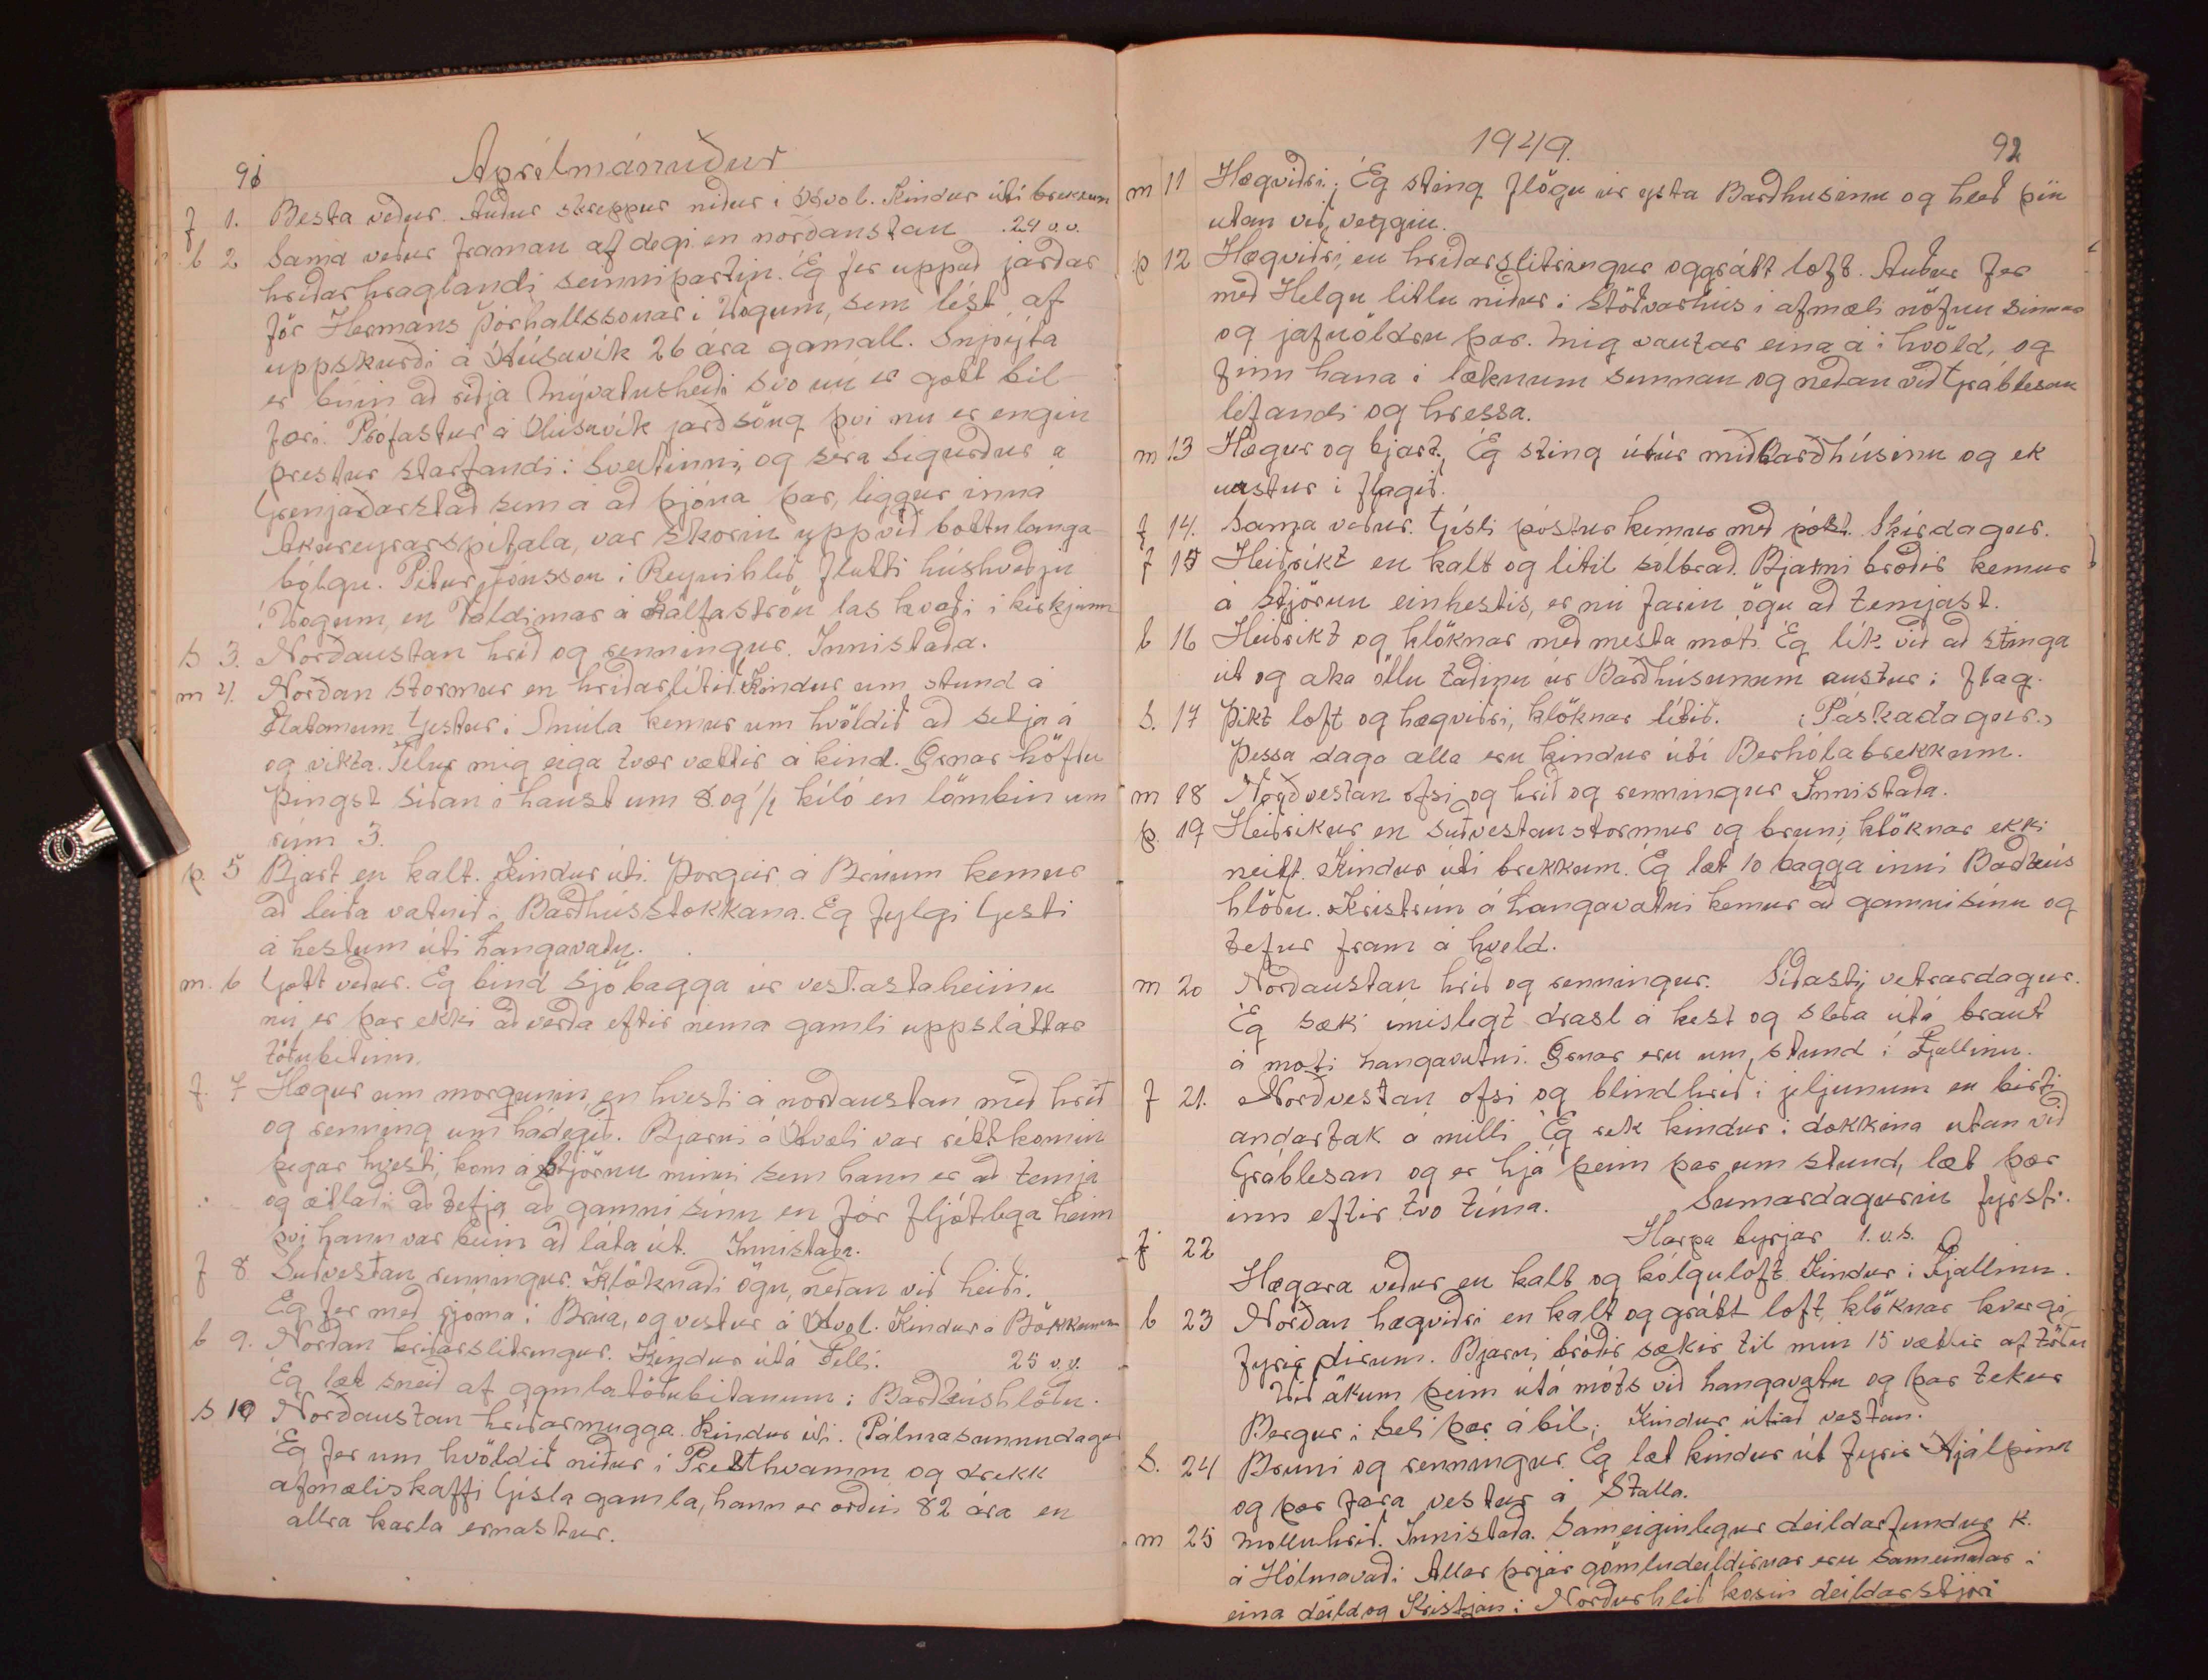 91 Aprílmánuður
f 1. Besta veður. Auður skreppur niður í Hvol. Kindur útí brekkum
24 v.v.
l 2 Sama veður framan af degi en norðaustan
hríðarhraglandi seinnipartin. Ég fer uppað jarðar
för Hermans Þórhallssonar í Vogum, sem lést af
uppskurði á Húsavík 26 ára gamall. Snjoýta
er búin að riðja Mývatnsheiði svo nú er gott bíl-
færi. Prófastur á Húsavík jarðsöng því nu er engin
prestur starfandi í Sveitinni, og séra Sigurður á
Grenjaðarstað sem á að þjóna þar, liggur inna
Akureyrarspítala, var skorin uppvið bottnlanga-
bólgu. Pétur Jónsson í Reynihlíð flutti húskveðju
í Vogum, en Valdimar á Kálfaströn las kvæði í kirkjunn
S 3. Norðaustan hríð og renningur. Innistaða.
m 4. Norðan stormur en hríðarlítið. Kindur um stund á
flatonum Gestur í Múla kemur um kvöldið að setja á
og vikta. Telur mig eiga tvær vættir á kind. Ærnar höfðu
þingst síðan í haust um 8 og ½ kíló en lömbin um
rúm 3.
þ. 5 Bjart en kalt. Kindur úti. Þorgeir á Brúum kemur
að leiða vatnið í Barðhússtokkana. Eg fylgi Gesti
á hestum úti Langavatn.
m. 6 Gott veður. Eg bind sjö bagga úr vestastaheiinu
nú er þar ekki að verða eftir nema gamli uppsláttar
töðubitinn.
f. 7 Hægur um morgunin, en hvesti á norðaustan með hríð
og renning um hádegið. Bjarni á Hvoli var réttkomin
þegar hvesti, kom á Stjörnu minni sem hann er að temja
og ætlaði að tefja að gamni sínu en fór fljótlega heim
því hann var búin að láta út. Innistaða.
f 8 Suðvestan renningur. Klöknaði ögn, neðan við heiði.
Eg fer með rjóma í Brúa, og vestur á Hvol. Kindur á Bökkunum
l 9. Norðan hríðarslitringur. Kindur útá Felli. 25 v.v.
Eg læt sneið af gamlatöðubitanum í Barðhúshlöðu.
S 10 Norðaustan hríðarmugga. Kindur úti. (Pálmasunnudagur
Eg fer um kvöldið niður í Prestkvamm og drekk
afmæliskaffi Gísla gamla, hann er orðin 82 ára en
allra karla ernastur.
1949. 92
m 11 Hægviðri. Ég sting flögu úr ysta Barðhúsinu og hleð þeim
utan við veggin.
þ 12 Hægviðri, en hríðarslitringur oggrátt loft. Auður fer
með Helgu litlu niður í Stöðvarhús í afmæli nöfnu sinnar
og jafnöldru þar. Mig vantar eina á í kvöld, og
finn hana í læknum sunnan og neðan við Gráblesan
lifandi og hressa.
m 13 Hægur og bjart. Ég sting útúr miðBarðhúsinu og ek
austur í flagið.
f 14. Sama veður. Gísli póstur kemur með póst. Skírdagur.
f 15 Heiðríkt en kalt og lítil sólbráð. Bjarni bróðir kemur
á Stjörnu einhestis, er nú farin ögn að temjast.
l 16 Heiðríkt og klöknar með mesta móti. Ég lík við að stinga
út og aka öllu taðinu úr Barðhúsunum austur í flag.
S. 17 Þikt loft og hægviðri, klöknar lítið. (Páskadagur.)
Þessa daga alla eru kindur útí Berhólabrekkum.
m 18 Norðvestan ofsi og hríð og renningur Innistaða.
þ. 19 Heiðrikur en suðvestanstormur og bruni, klöknar ekki
neitt. Kindur úti brekkum. Ég læt 10 bagga inní Barðhús
hlöðu. Kristrún á Langavatni kemur að gamnisínu og
tefur fram á kveld.
m 20 Norðaustan hríð og renningur. Síðasti vetrardagur.
Ég sæki ímislegt drasl á hest og sleða útá braut
á móti Langavatni. Ærnar eru um stund í Fjallinu.
f 21. Norðvestan ofsi og blindhríð í jeljunum en birti
andartak á milli. Ég rek kindur í dokkina utan við
Gráblesan og er hjá þeim þar um stund, læt þær
inn eftir tvo tíma. Sumardagurin fyrsti.
Harpa byrjar 1. v.s.
f 22
Hægara veður en kalt og kólguloft. Kindur í Fjallinu.
l 23 Norðan hægviðri en kalt og grátt loft, klöknar hvergi
fyrir dirum. Bjarni bróðir sækir til mín 15 vættir af töðu
Við ökum þeim útá móts við Langavatn og þar tekur
Bergur í Seli þær á bíl. Kindur útiað vestan.
S. 24 Bruni og renningur. Eg læt kindur út fyrir Hjálpinn
og þær fara vestur á Stalla.
m 25 Molluhríð. Innistaða. Sameiginlegur deildarfundur K.
á Hólmavaði Allar þrjár gömludeildirnar eru sameinaðar í
eina deild og Kristján í Norðurhlíð kosin deildarstjóri